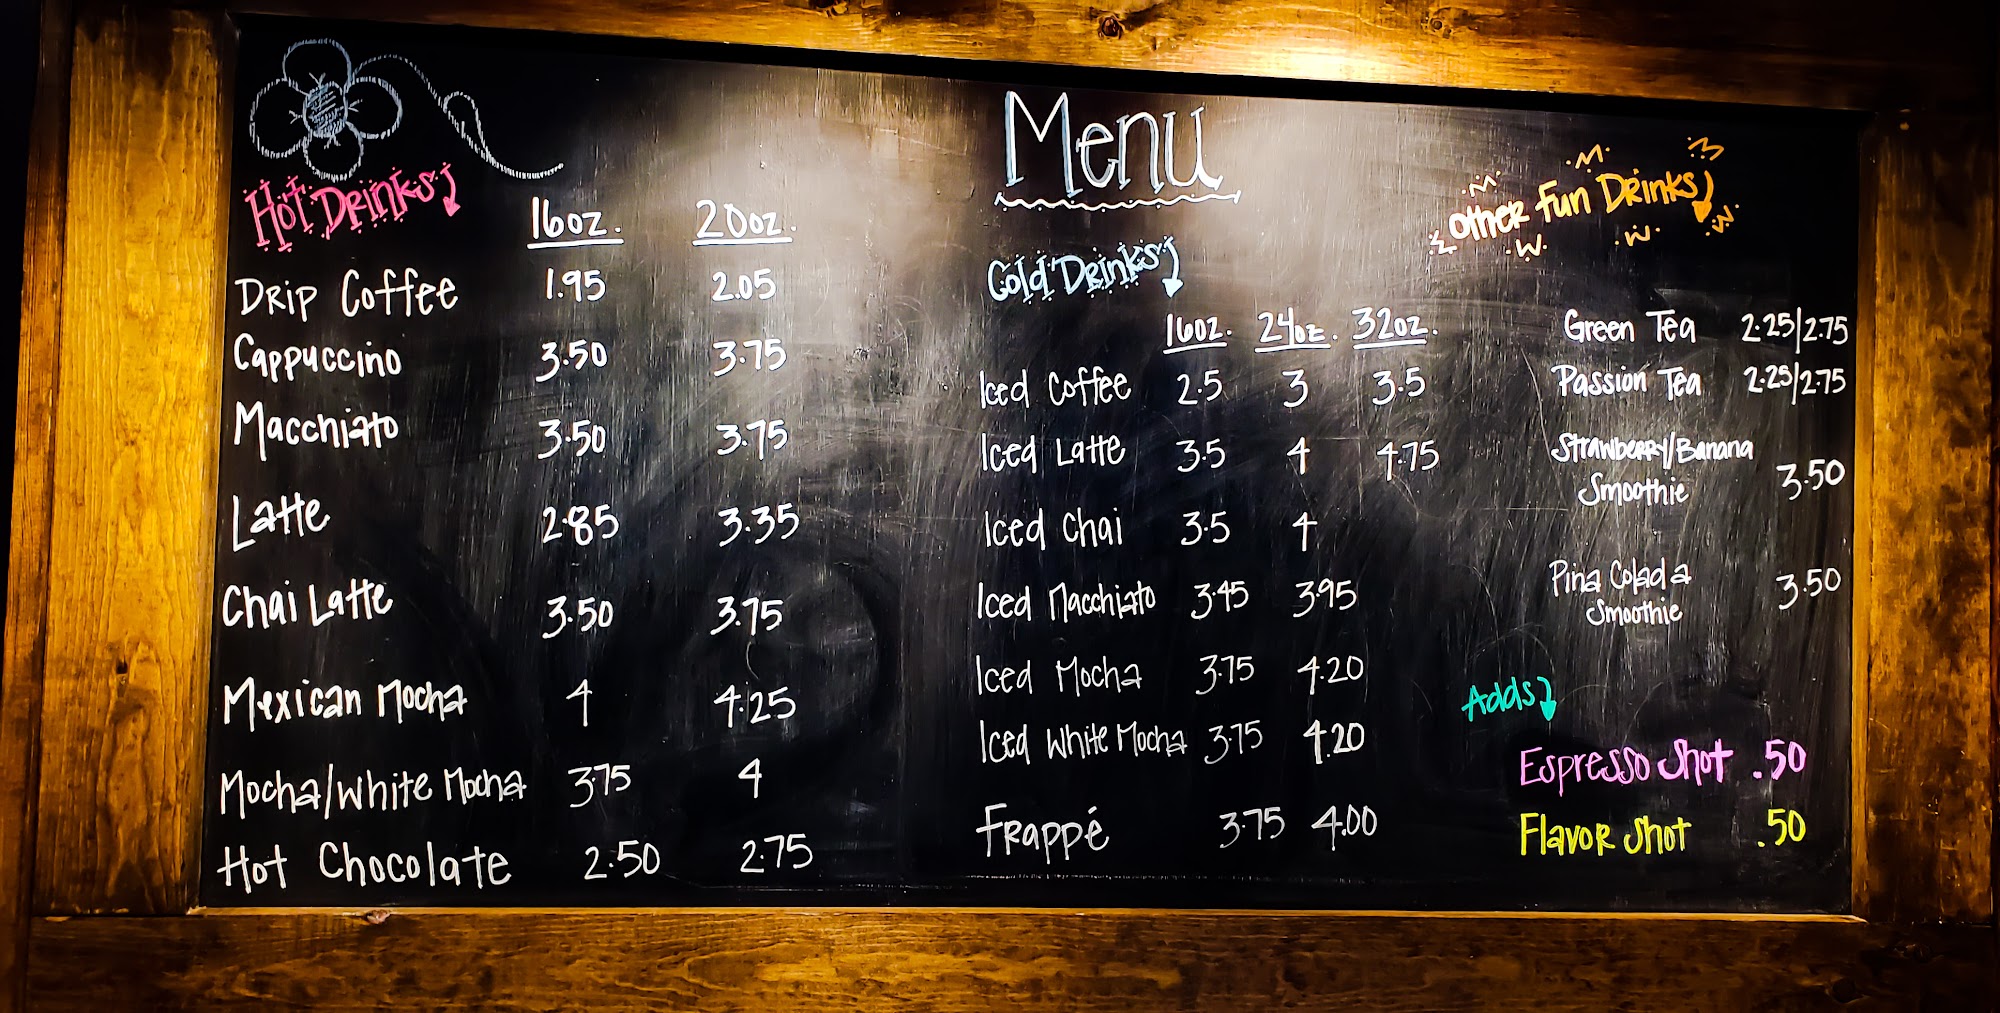 Menu
Hot Drinks
16oz. 20oz.
Drip Coffee 1.95 2.05
Cappuccino 3.50 3.75
Macchiato 3.50 3.75
Latte 2.85 3.35
Chai Latte 3.50 3.75
Mexican Mocha 4 4.25
Mocha/White Mocha 3.75 4
Hot Chocolate 2.50 2.75
Cold Drinks
16oz. 24oz. 32oz.
Iced Coffee 2.5 3 3.5
Iced Latte 3.5 4 4.75
Iced Chai 3.5 4
Iced Macchiato 3.45 3.95
Iced Mocha 3.75 4.20
Iced White Mocha 3.75 4.20
Frappé 3.75 4.00
Other Fun Drinks
Green Tea 2.25/2.75
Passion Tea 2.25/2.75
Strawberry/Banana
Smoothie 3.50
Pina Colada
Smoothie 3.50
Adds
Espresso Shot .50
Flavor Shot .50